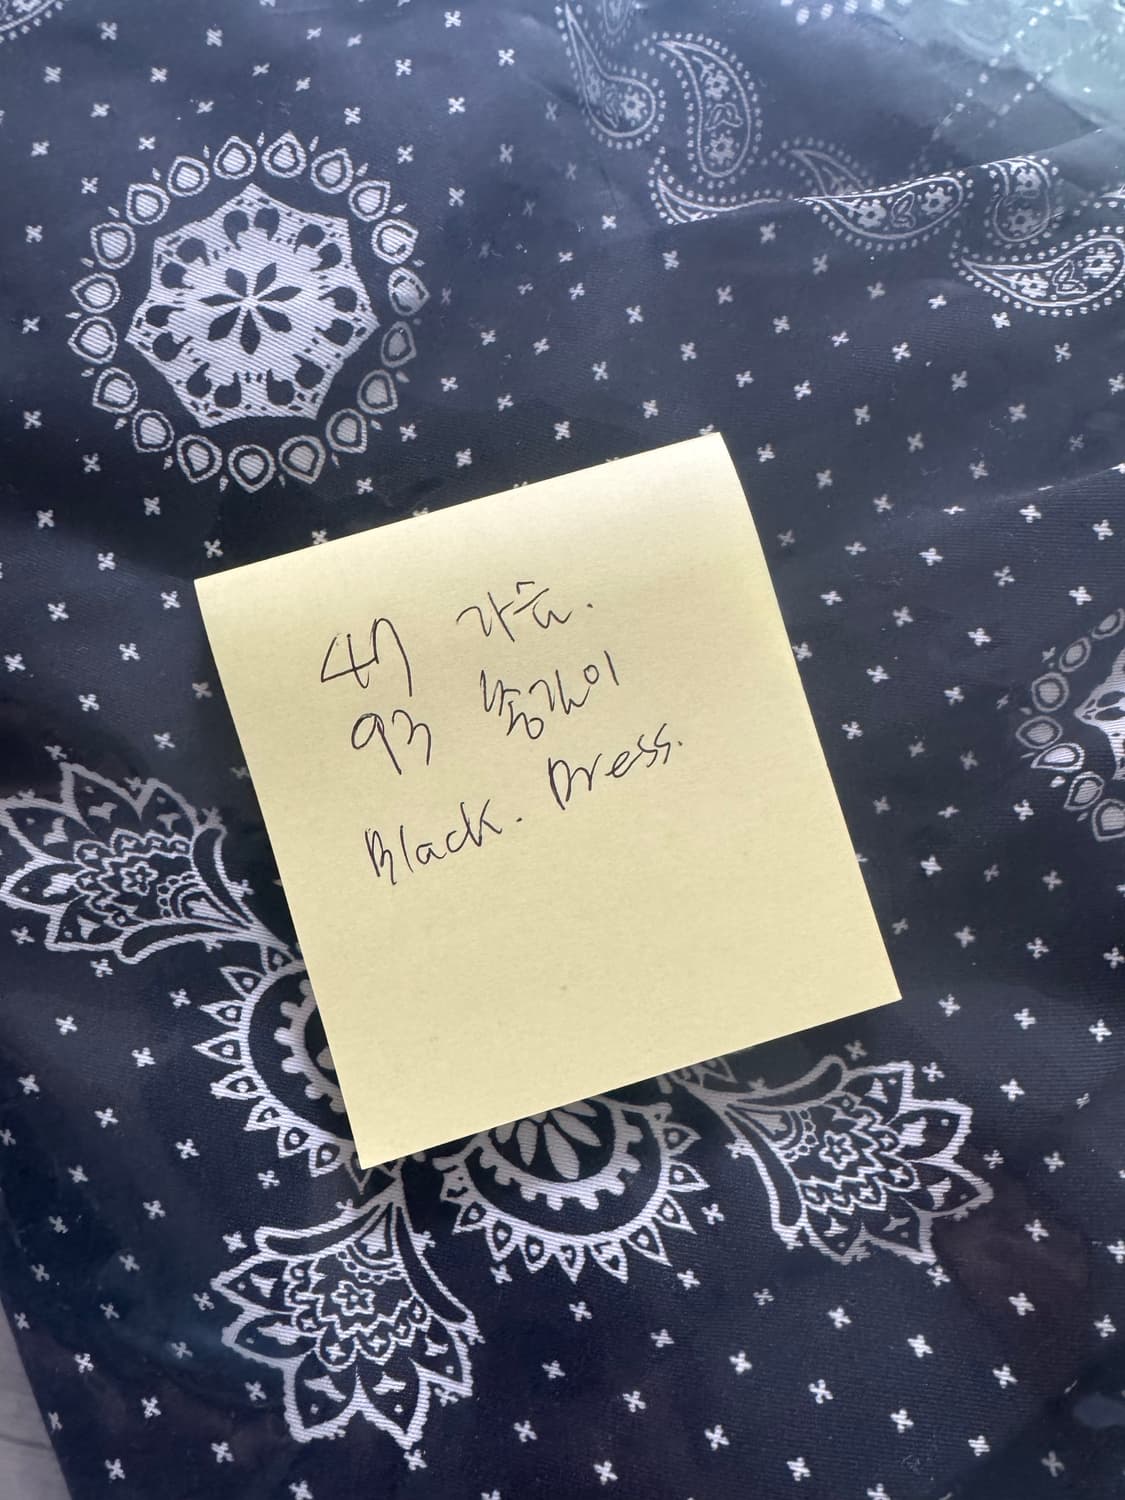 47 가슴.
93 총길이
Black. Dress.